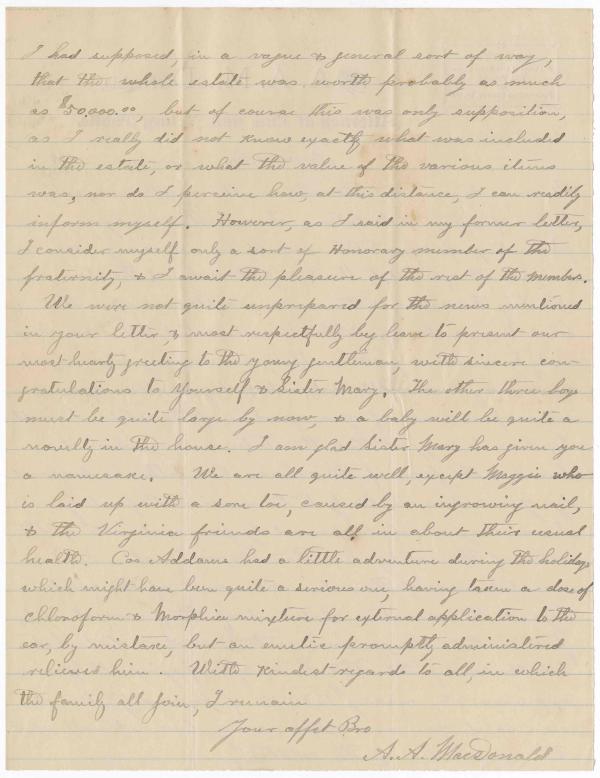 I had supposed, in a vague & general sort of way,
that the whole estate was worth probably as much
as $50,000.00, but of course this was only supposition,
as I really did not know exactly what was included
in the estate, or what the value of the various items
was, nor do I perceive how, at this distance, I can readily
inform myself. However, as I said in my former letter,
I consider myself only a sort of Honorary member of the
fraternity, & I await the pleasure of the rest of the members.
We were not quite unprepared for the news mentioned
in your letter, & most respectfully beg leave to present our
most hearty greeting to the young gentleman, with sincere con-
gratulations to yourself & Sister Mary. The other three boys
must be quite large by now, & a baby will be quite a
novelty in the house. I am glad Sister Mary has given you
a namesake. We are all quite well, except Maggie who
is laid up with a sore toe, caused by an ingrowing nail,
& the Virginia friends are all in about their usual
health. Cos Addams had a little adventure during the holidays
which might have been quite a serious one, having taken a dose of
Chloroform & Morphia mixture for external application to the
ear, by mistake, but an emetic promptly administered
relieved him. With kindest regards to all, in which
the family all join, I remain
Your affet Bro
A. A. MacDonald